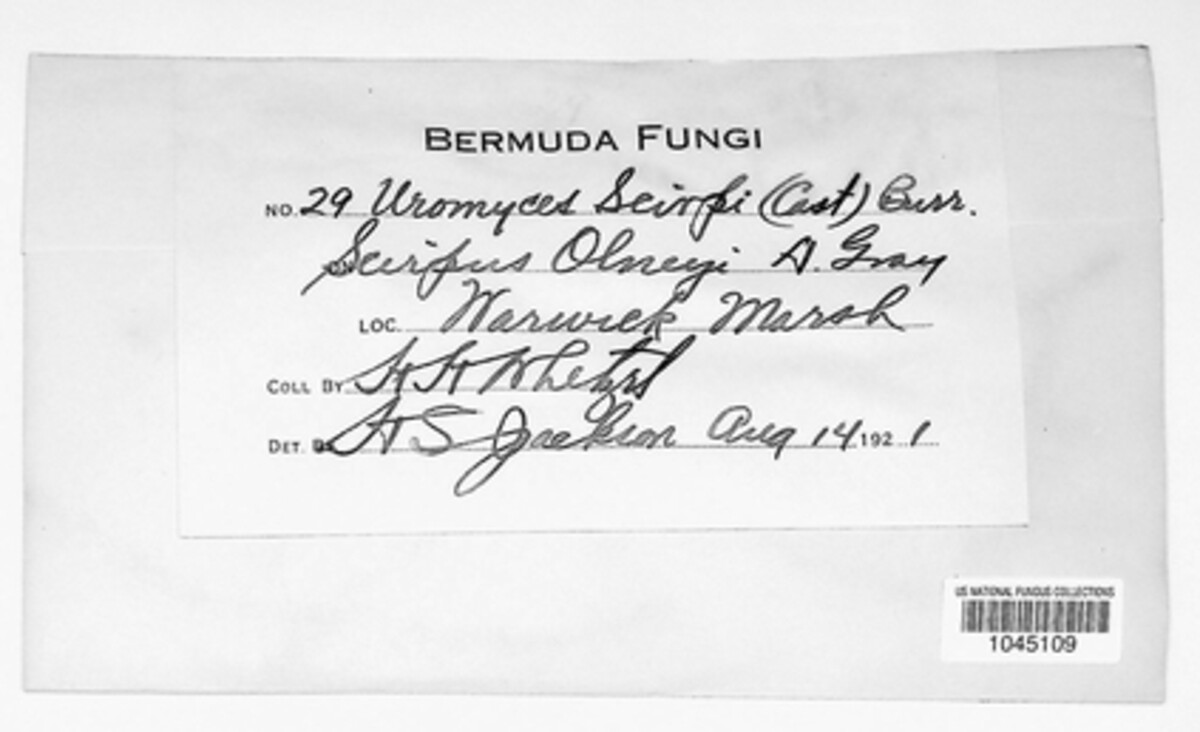 BERMUDA FUNGI
NO. 29 Uromyces Scirpi (Cast) Burr.
Scirpus Olneyi A. Gray
LOC. Warwick Marsh
COLL BY H H Whetzel
DET. BY H S Jackson Aug 14 192 1
US NATIONAL FUNGUS COLLECTIONS
1045109